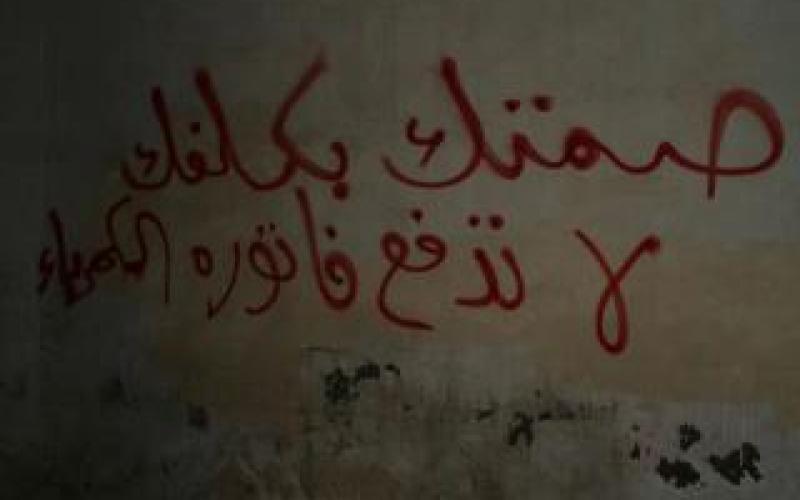 صمتك بكلفك
لا تدفع فاتوره الكهرباء